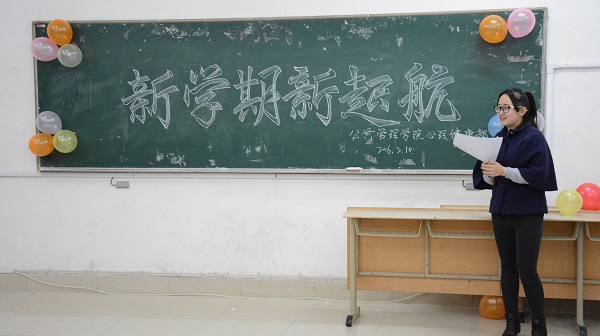 新学期新起航
公共管理学院心理健康部
2016.3.10